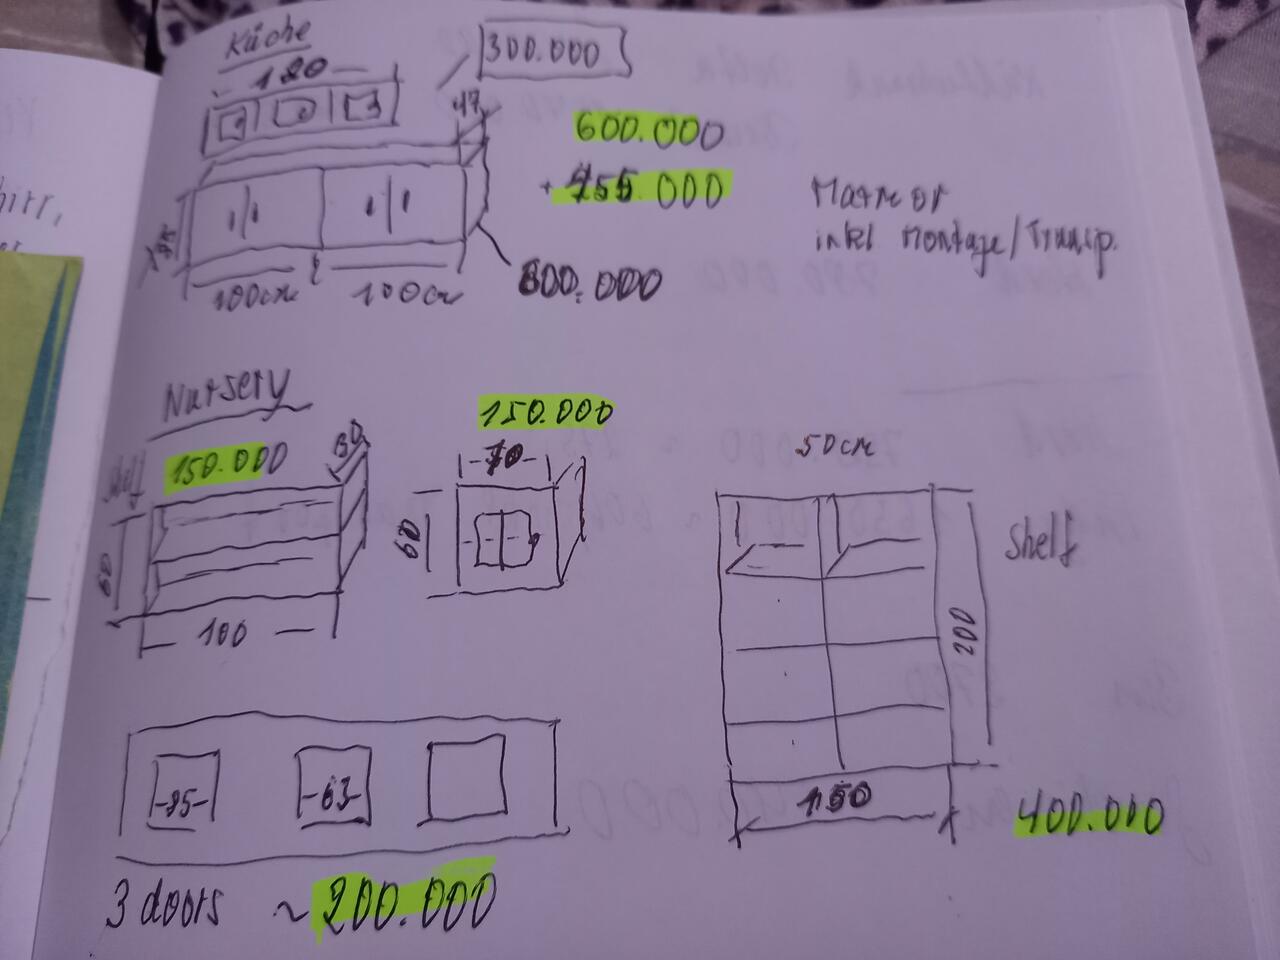 Küche
120
300.000
47
600.000
+ 455.000
Marmor
inkl Montage/Transp.
100cm
100cm
600.000
Nursery
150.000
Shelf
150.000
30
70
60
60
100
50cm
Shelf
200
150
400.000
-85-
-63-
3 doors ~ 200.000